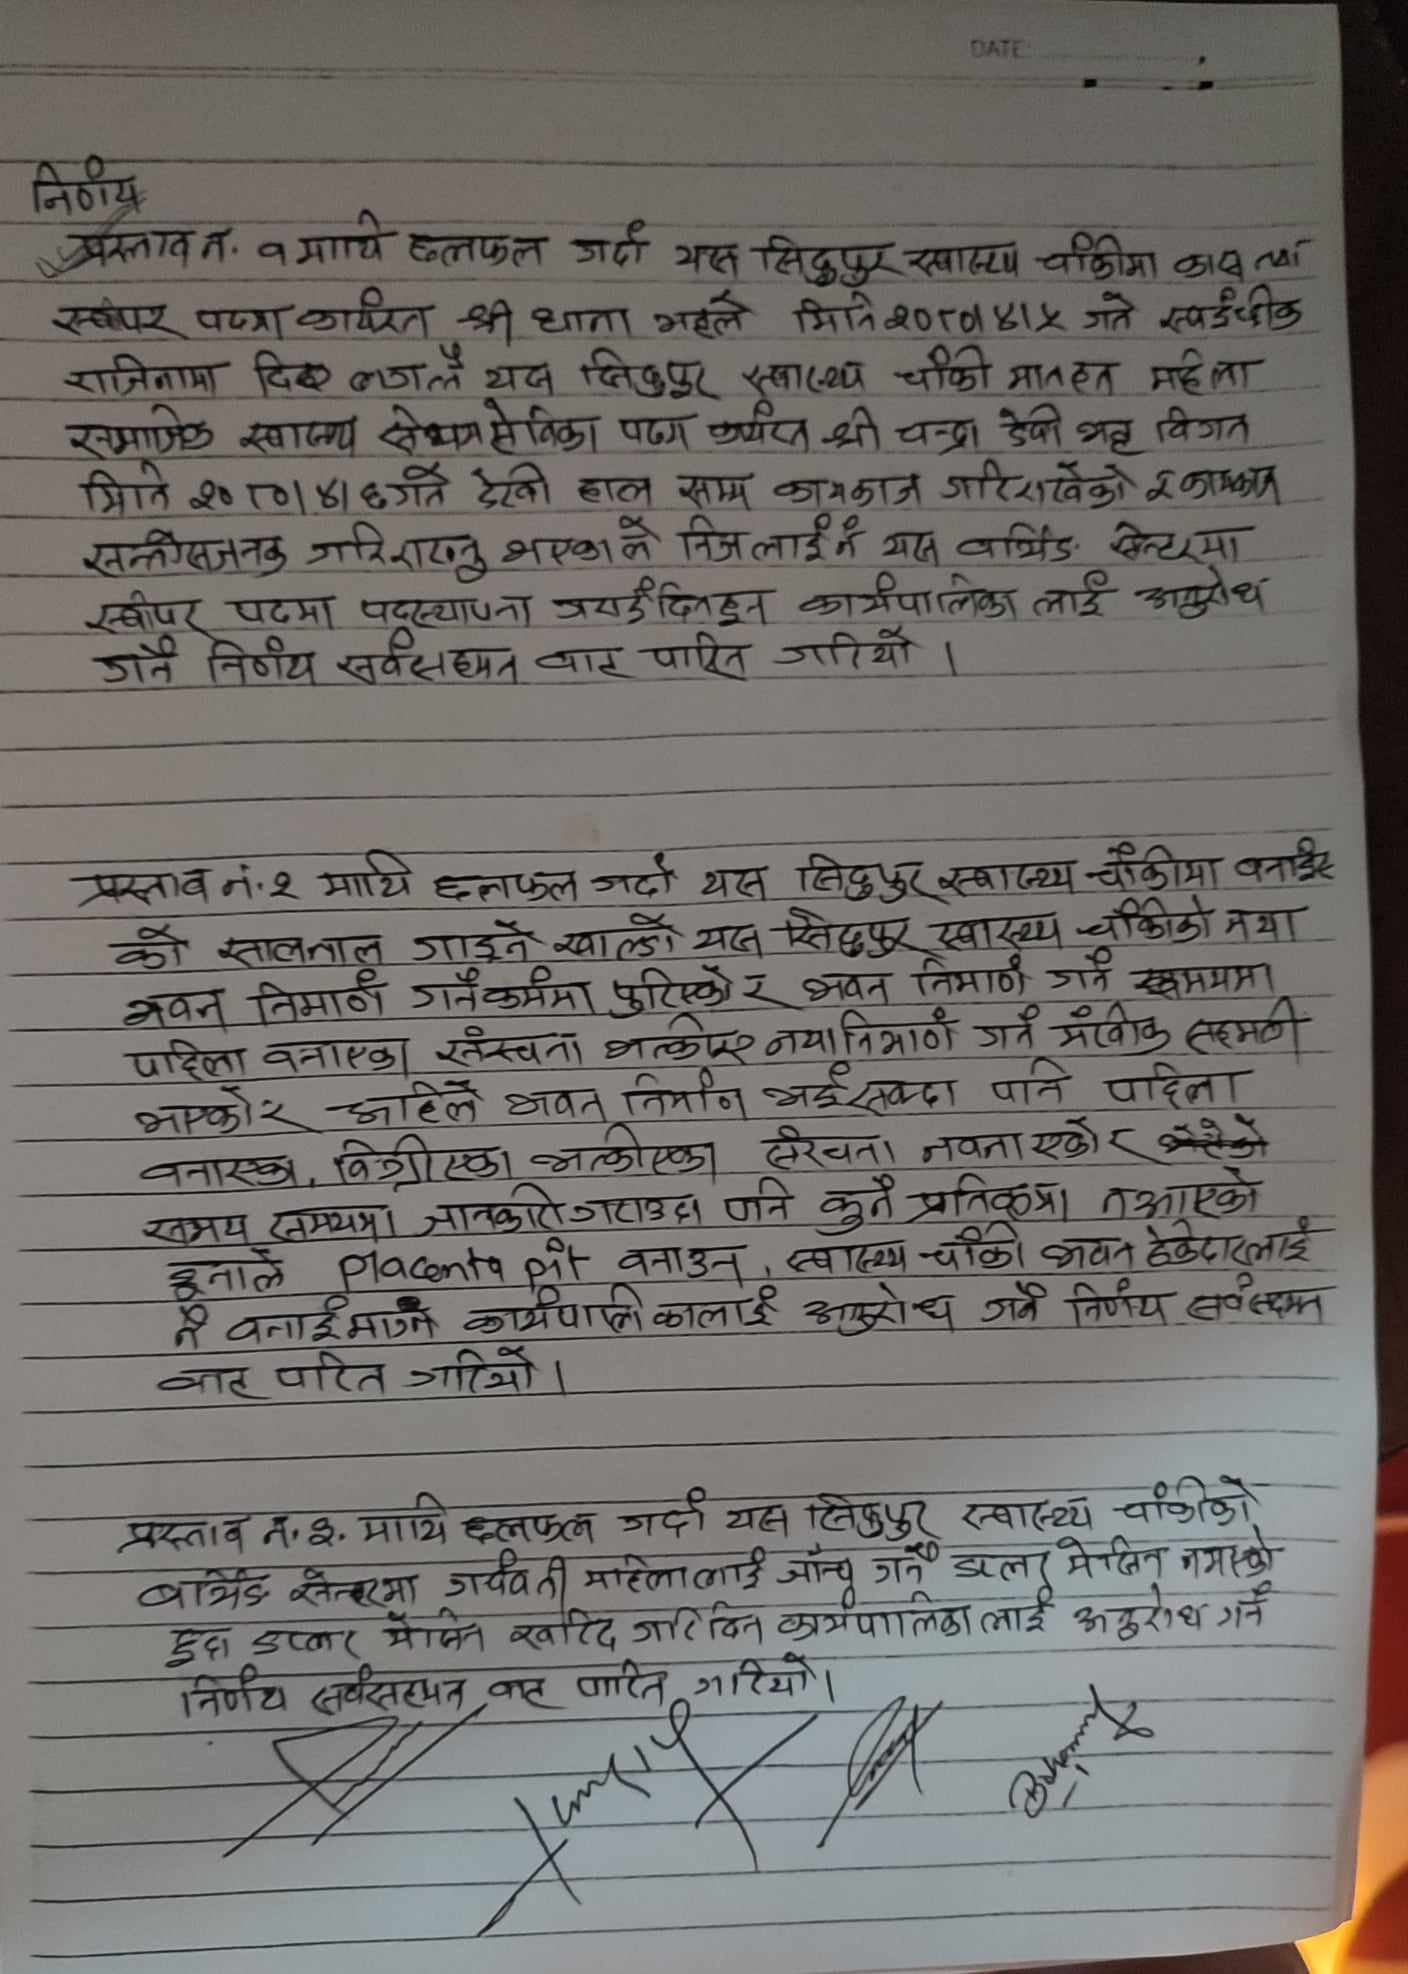 DATE
निर्णय
प्रस्ताव न. १ माथि छलफल गर्दा यस सिद्धपुर स्वास्थ्य चौकीमा का.स तथा
स्वीपर पदमा कार्यरत श्री धाना भट्टले मिति २०८०।४।५ गते स्वईच्छीक
राजिनामा दिए यस सिद्धपुर स्वास्थ्य चौकी मातहत महिला
सामाजिक स्वास्थ्य स्वयमसेविका पदमा कार्यरत श्री चन्द्रा देवी भट्ट विगत
मिति २०८०।४।६ गते देखी हाल सम्म कामकाज गरिराखेको र कामकाज
सन्तोसजनक गरिराख्नु भएकाले निजलाई नै यस वर्थिङ सेन्टरमा
स्वीपर पदमा पदस्थापना गराईदिनहुन कार्यपालिका लाई अनुरोध
गर्ने निर्णय सर्वसहमत वाट पारित गरियो ।
प्रस्ताव नं. २ माथि छलफल गर्दा यस सिद्धपुर स्वास्थ्य चौकीमा वनाईए
को सालनाल गाड्ने खाल्डो यस सिद्धपुर स्वास्थ्य चौकीको नया
भवन निर्माण गर्नेक्रममा फुटिएको र भवन निर्माण गर्ने समयमा
पहिला वनाएका संरचना भत्कीए नया निर्माण गर्ने मौखीक सहमती
भएको र अहिले भवन निर्माण भईसक्दा पनि पहिला
वनाएका, विग्रीएका भत्कीएका संरचना नवनाएको र
समय समयमा जानकारी गराउदा पनि कुनै प्रतिकृया नआएको
हुनाले placenta pit वनाउन, स्वास्थ्य चौकी भवन ठेकेदारलाई
नै वनाई माग्ने कार्यपालीकालाई अनुरोध गर्ने निर्णय सर्वसहमत
वाट पारित गरियो ।
प्रस्ताव न. ३. माथि छलफल गर्दा यस सिद्धपुर स्वास्थ्य चौकीको
बर्थिङ सेन्टरमा गर्भवती महिलालाई जाँच गर्ने डप्लर मेसिन नभएको
हुदा डप्लर मेसिन खरिद गरिदिन कार्यपालिका लाई अनुरोध गर्ने
निर्णय सर्वसहमत वाट पारित गरियो ।